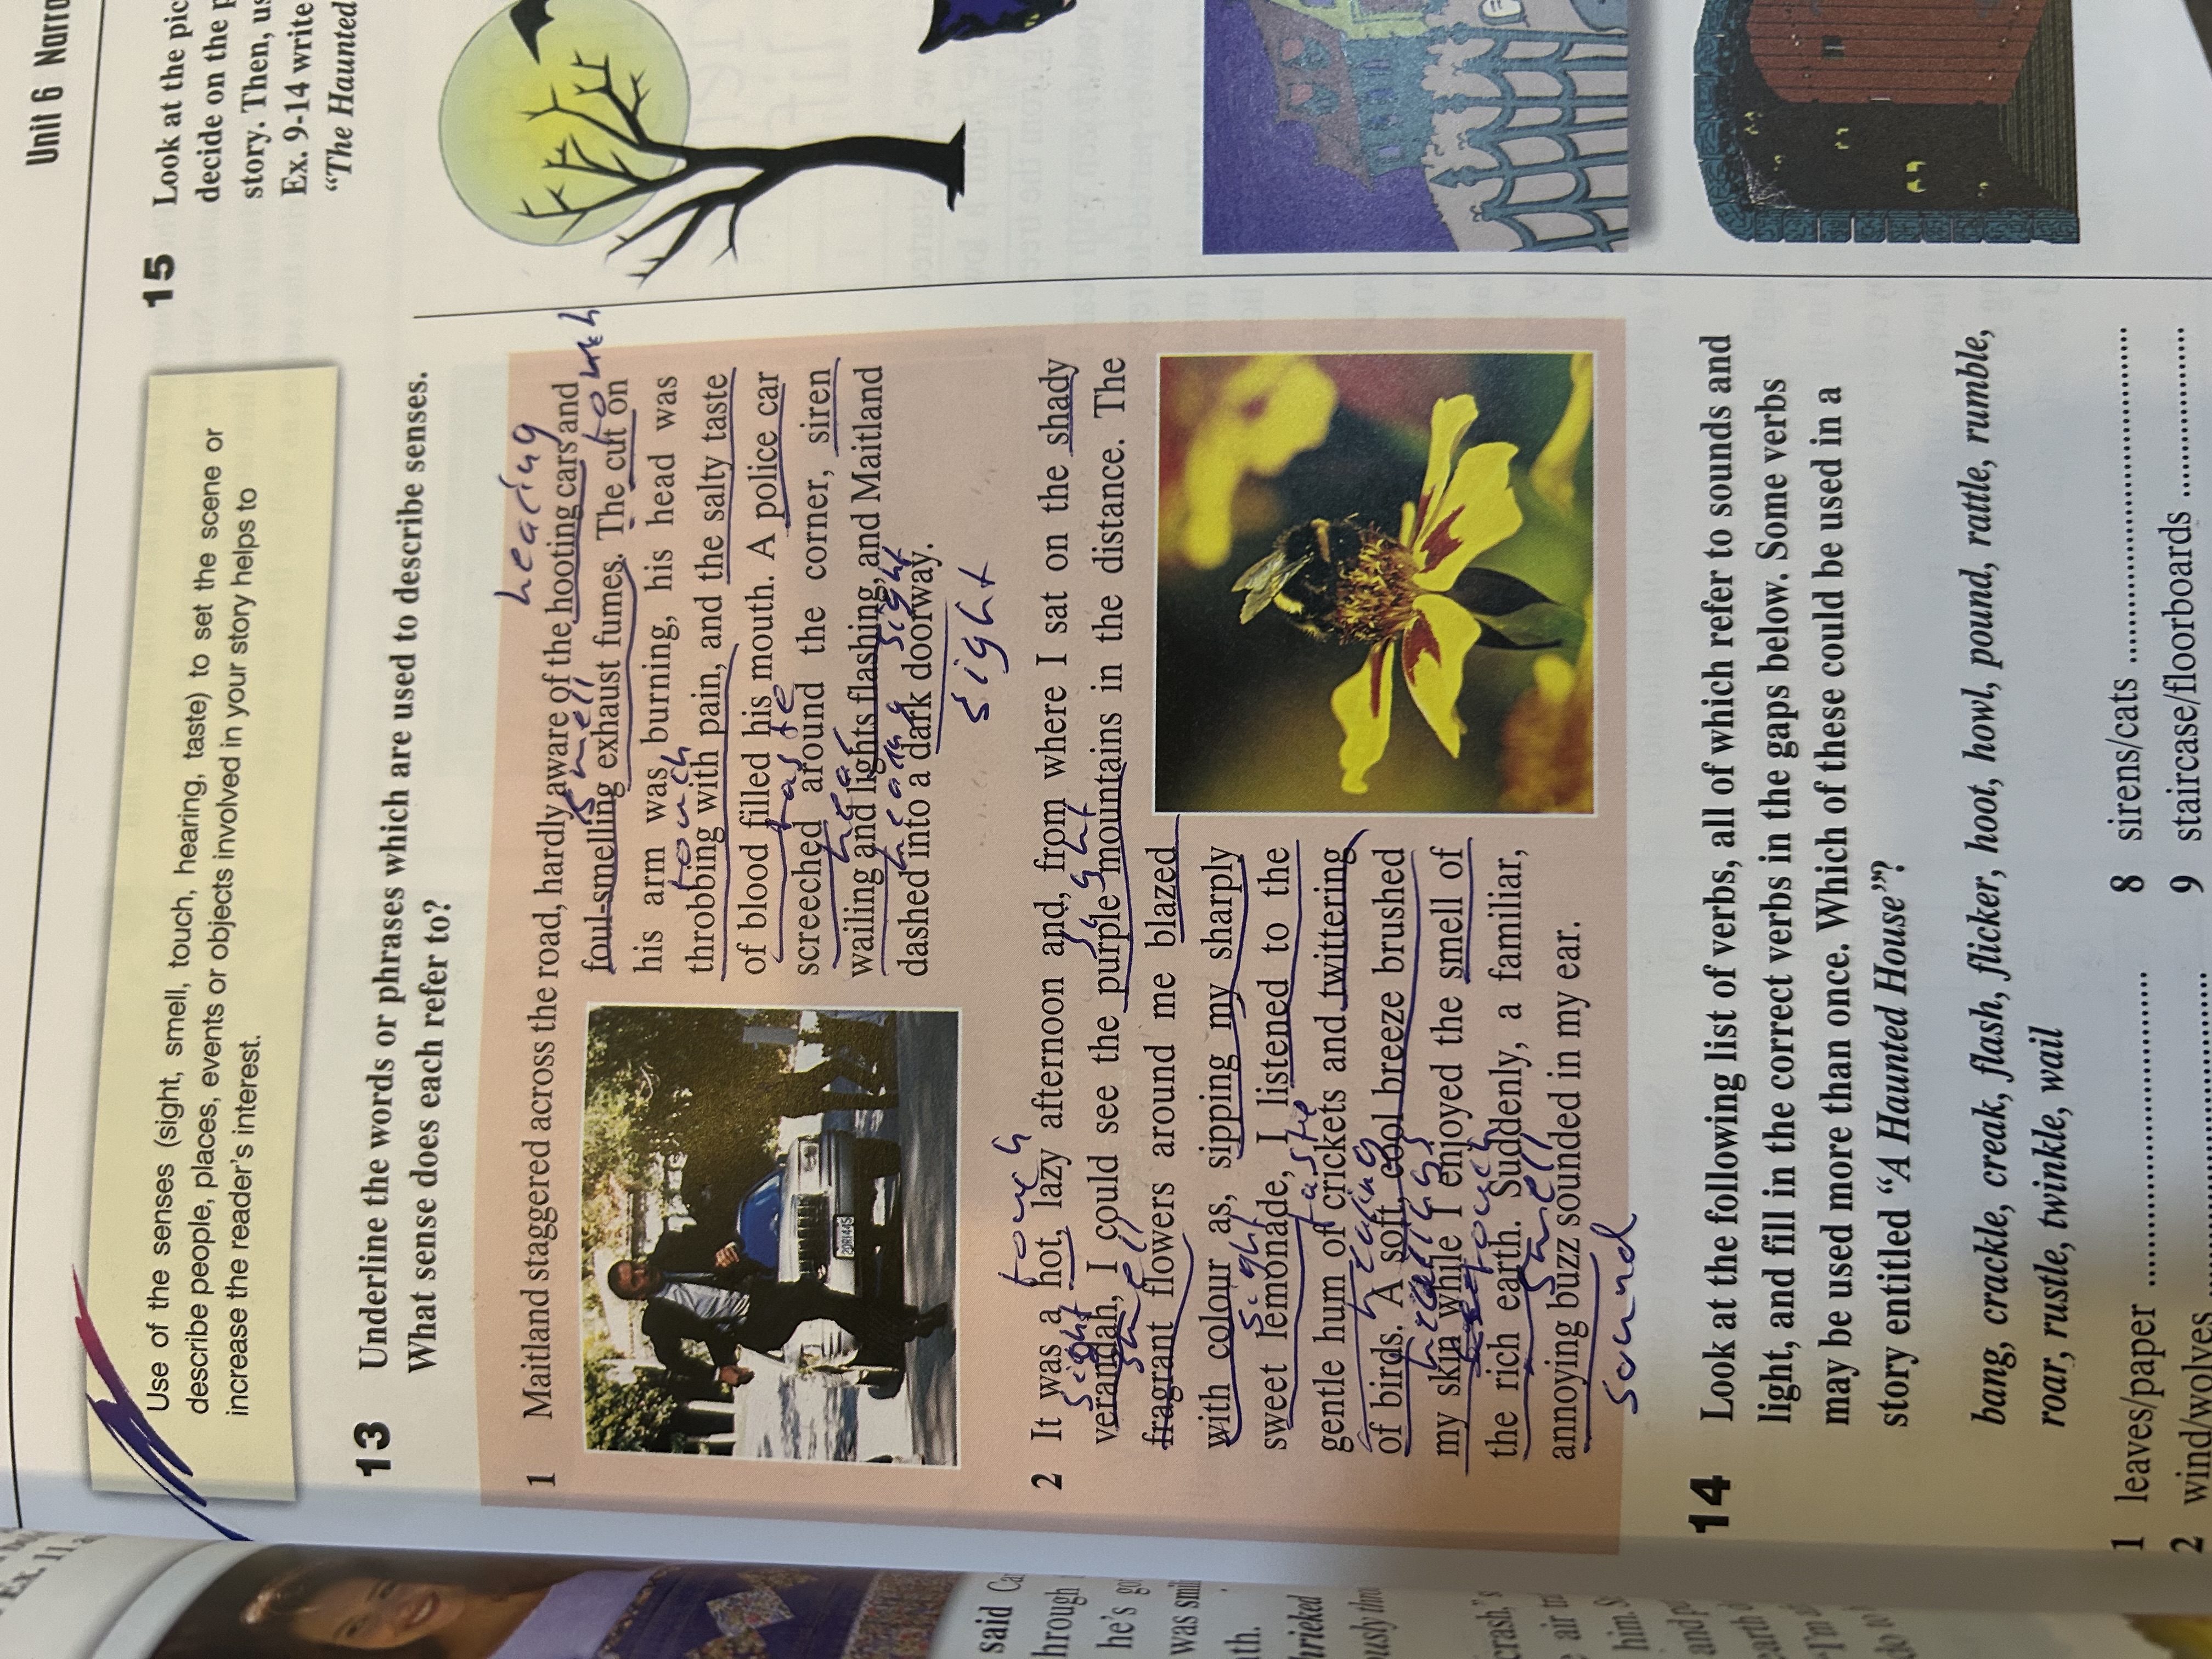 Unit 6 Narra
Use of the senses (sight, smell, touch, hearing, taste) to set the scene or
describe people, places, events or objects involved in your story helps to
increase the reader's interest.
13 Underline the words or phrases which are used to describe senses.
What sense does each refer to?
hearing
1 Maitland staggered across the road, hardly aware of the hooting cars and
smell
touch
foul-smelling exhaust fumes. The cut on
his arm was burning, his head was
touch
throbbing with pain, and the salty taste
of blood filled his mouth. A police car
taste
screeched around the corner, siren
wailing and lights flashing, and Maitland
sight
dashed into a dark doorway.
sight
touch
2 It was a hot, lazy afternoon and, from where I sat on the shady
sight
sight
verandah, I could see the purple mountains in the distance. The
smell
fragrant flowers around me blazed
with colour as, sipping my sharply
sight
sweet lemonade, I listened to the
taste
gentle hum of crickets and twittering
hearing
of birds. A soft, cool breeze brushed
hearing
my skin while I enjoyed the smell of
touch
the rich earth. Suddenly, a familiar,
smell
annoying buzz sounded in my ear.
sound
20R1445
14 Look at the following list of verbs, all of which refer to sounds and
light, and fill in the correct verbs in the gaps below. Some verbs
may be used more than once. Which of these could be used in a
story entitled “A Haunted House”?
bang, crackle, creak, flash, flicker, hoot, howl, pound, rattle, rumble,
roar, rustle, twinkle, wail
1 leaves/paper ..............................
2 wind/wolves ..............................
8 sirens/cats ..............................
9 staircase/floorboards ..............
15 Look at the pic
decide on the p
story. Then, us
Ex. 9-14 write
“The Haunted
Ex. 11 a
said Ca
hrough
he's go
was smil
th.
hrieked
ously thro
crash,” s
air t
him. S
and p
earth
“I'm a
do to